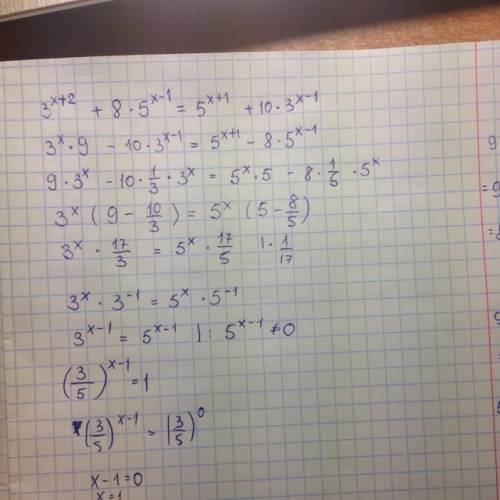 3^{x+2} + 8 · 5^{x-1} = 5^{x+1} + 10 · 3^{x-1}
3^x · 9 - 10 · 3^{x-1} = 5^{x+1} - 8 · 5^{x-1}
9 · 3^x - 10 · \frac{1}{3} · 3^x = 5^x · 5 - 8 · \frac{1}{5} · 5^x
3^x ( 9 - \frac{10}{3} ) = 5^x ( 5 - \frac{8}{5} )
3^x · \frac{17}{3} = 5^x · \frac{17}{5} | · \frac{1}{17}
3^x · 3^{-1} = 5^x · 5^{-1}
3^{x-1} = 5^{x-1} | : 5^{x-1} ≠ 0
( \frac{3}{5} )^{x-1} = 1
( \frac{3}{5} )^{x-1} = ( \frac{3}{5} )^0
x - 1 = 0
x = 1